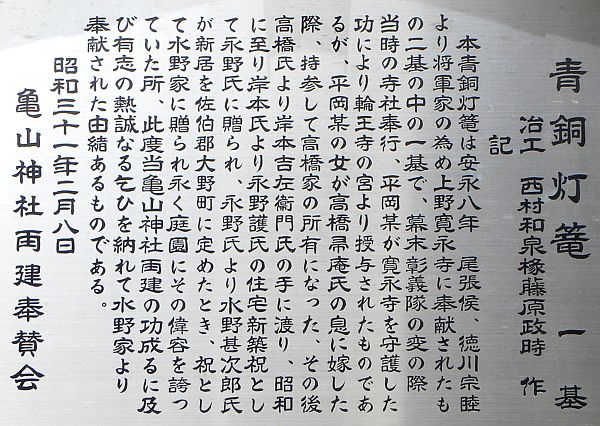 青銅灯篭　一基
冶工　西村和泉椽藤原政時　作
記
本青銅灯篭は安永八年　尾張候、徳川宗睦
より将軍家の為め上野寛永寺に奉献されたも
の二基の中の一基で、幕末彰義隊の変の際
当時の寺社奉行、平岡某が寛永寺を守護した
功により輪王寺の宮より授与されたものであ
るが、平岡某の女が高橋帚庵氏の息に嫁した
際、持参して高橋家の所有になった、その後
高橋氏より岸本吉左衛門氏の手に渡り、昭和
に至り岸本氏より永野護氏の住宅新築祝とし
て永野氏に贈られ、永野氏より水野甚次郎氏
が新居を佐伯郡大野町に定めたとき、祝とし
て水野家に贈られ永く庭園にその偉容を誇っ
ていた所、此度当亀山神社再建の功成るに及
び有志の熱誠なる乞ひを納れて水野家より
奉献された由緒あるものである。
昭和三十一年二月八日
亀山神社再建奉賛会